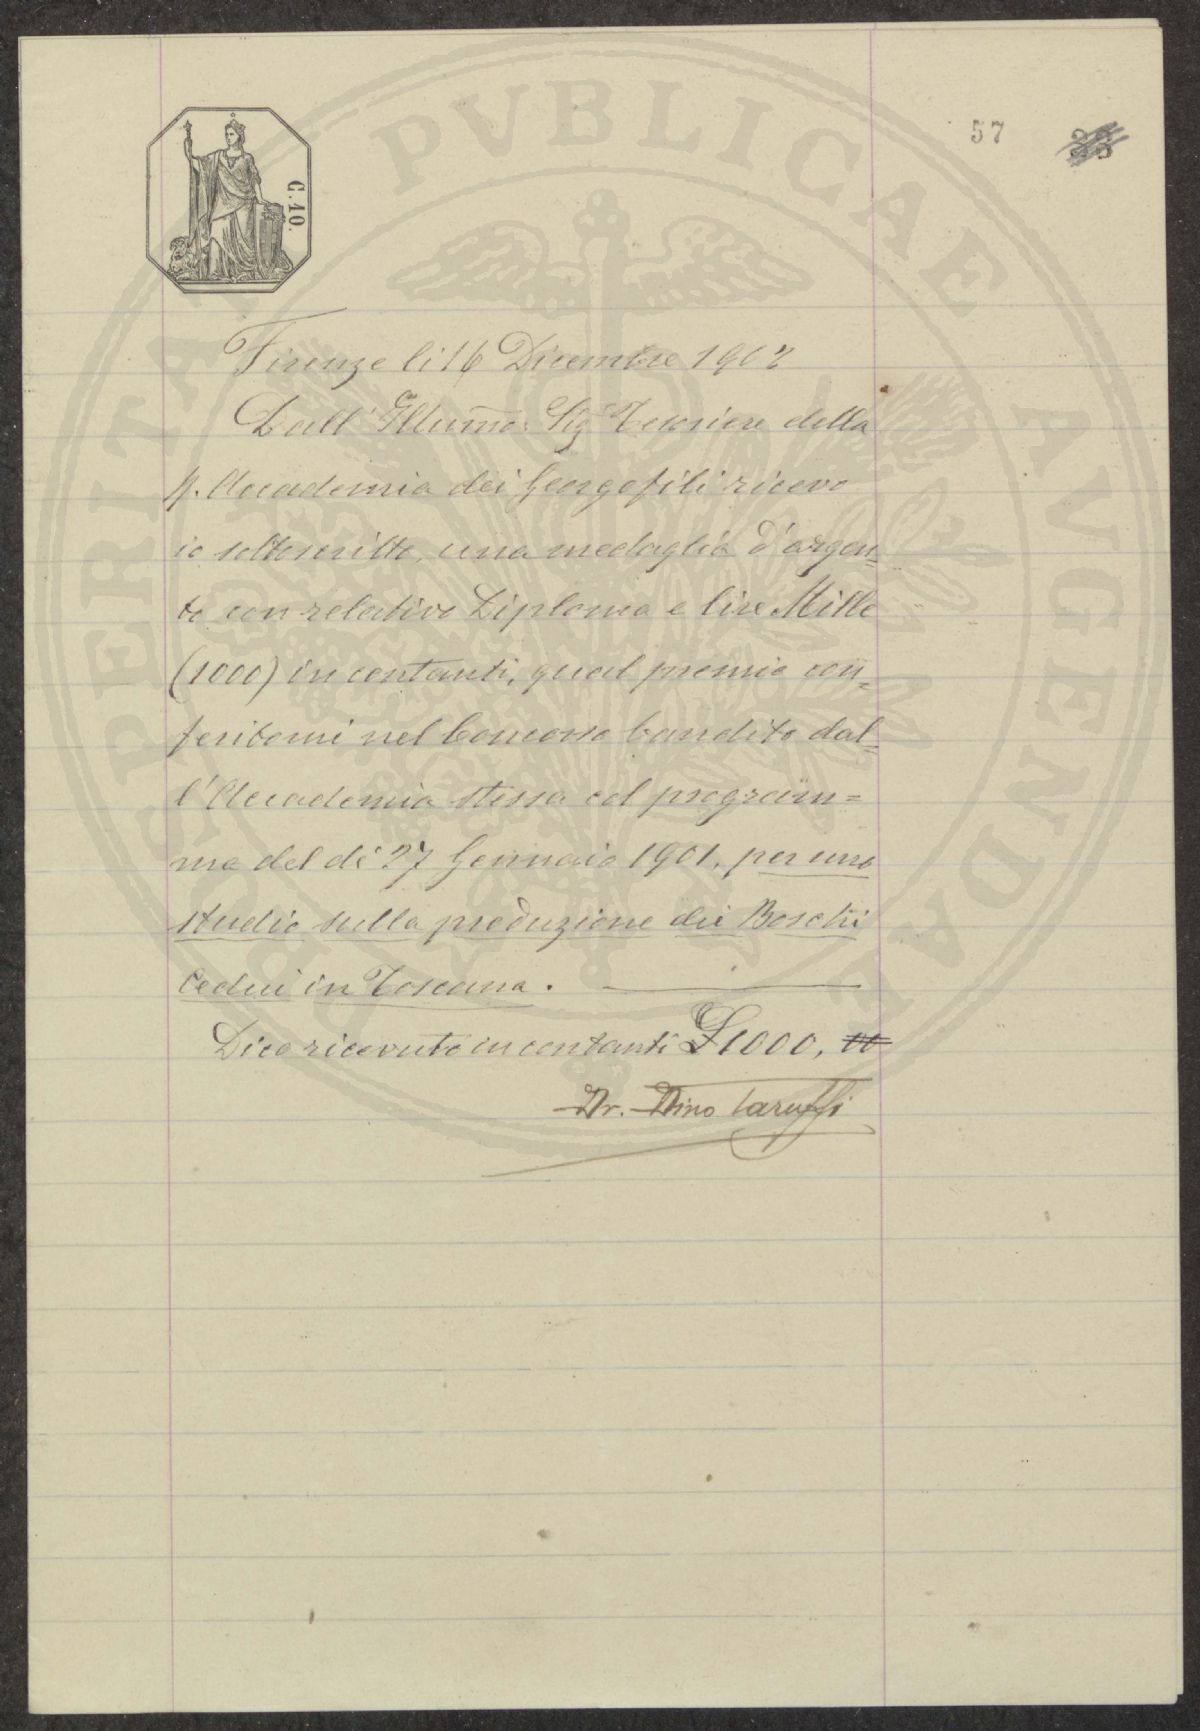 57
C. 10.
PROSPERITATI PVBLICAE AVGENDAE
Firenze li 16 Dicembre 1902
Dall' Illumo. Sig Tesoriere della
R. Accademia dei Georgofili ricevo
io sottoscritto, una medaglia d'argen=
to con relativo Diploma e lire Mille
(1000) in contanti, qual premio con=
feritomi nel Concorso bandito dal=
l'Accademia stessa col program=
ma del dì 27 Gennaio 1901, per uno
studio sulla produzione dei Boschi
Cedui in Toscana.
Dico ricevute in contanti £ 1000, 00
Dr. Dino Taruffi